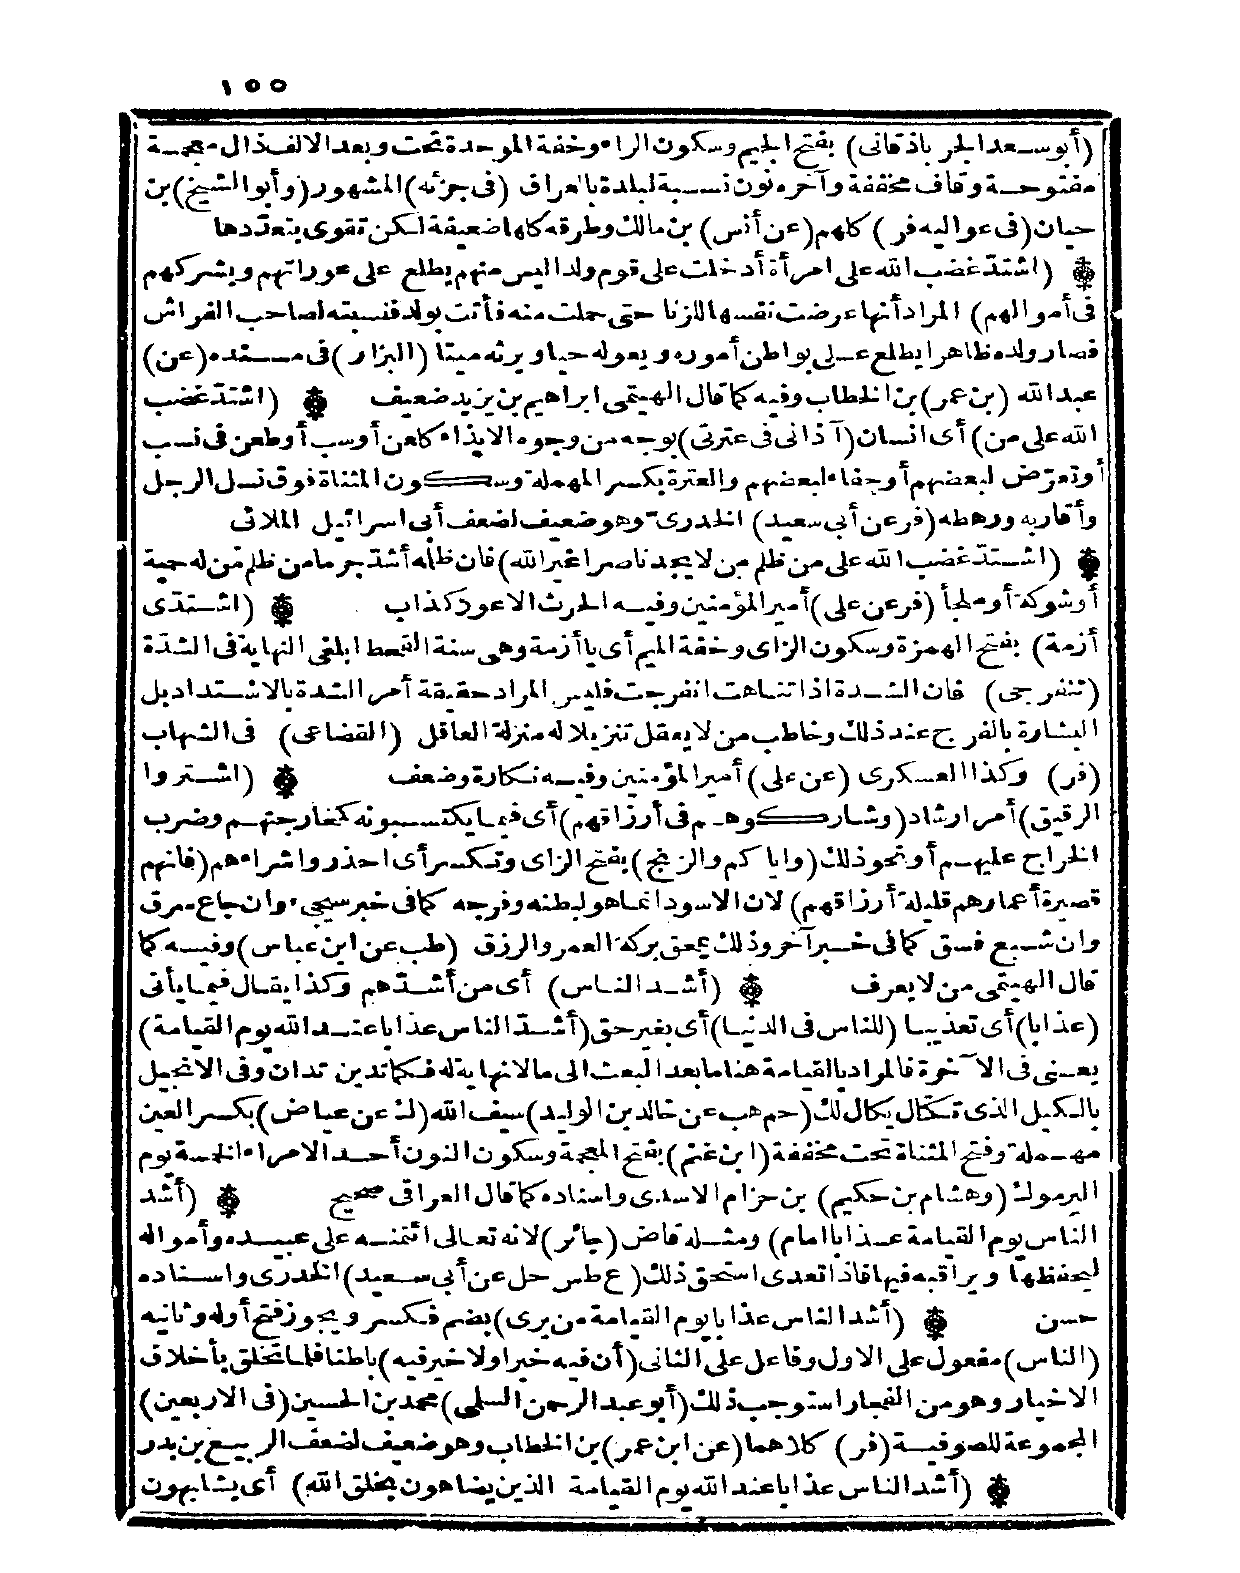 ١٥٥
(أبو سعد الجرباذقانى) بفتح الجيم وسكون الراء وخفة الموحدة تحت وبعد الالف ذال معجمة
مفتوحة وقاف مخففة وآخره نون نسبة لبلدة بالعراق (فى جزئه) المشهور (وأبو الشيخ) بن
حيان (فى عواليه فر) كلهم (عن أنس) بن مالك وطرقه كلها ضعيفة لكن تقوى بتعددها
(اشتد غضب الله على امرأة أدخلت على قوم ولدا ليس منهم يطلع على عوراتهم ويشركهم
فى أموالهم) المراد أنها عرضت نفسها للزنا حتى حملت منه فأتت بولد فنسبته لصاحب الفراش
فصار ولده ظاهرا يطلع على بواطن أموره ويعوله حيا ويرثه ميتا (البزار) فى مسنده (عن)
عبد الله (بن عمر) بن الخطاب وفيه كما قال الهيتمى ابراهيم بن يزيد ضعيف (اشتد غضب
الله على من) أى انسان (آذانى فى عترتى) بوجه من وجوه الايذاء كلعن أوسب أوطعن فى نسب
أوتعرّض لبعضهم أوجفاء لبعضهم والعترة بكسر المهملة وسكون المثناة فوق نسل الرجل
وأقاربه ورهطه (فر عن أبى سعيد) الخدرىّ وهو ضعيف لضعف أبى اسرائيل الملائى
(اشتد غضب الله على من ظلم من لا يجد ناصرا غير الله) فان ظلمه أشد جرما من ظلم من له حمية
أوشوكة أوملجأ (فر عن على) أمير المؤمنين وفيه الحرث الاعور كذاب (اشتدى
أزمة) بفتح الهمزة وسكون الزاى وخفة الميم أى يا أزمة وهى سنة القحط ابلغى النهاية فى الشدة
(تنفرجى) فان الشدة اذا تناهت انفرجت فليس المراد حقيقة أمر الشدة بالاشتداد بل
البشارة بالفرج عند ذلك وخاطب من لا يعقل تنزيلا له منزلة العاقل (القضاعى) فى الشهاب
(فر) وكذا العسكرى (عن على) أمير المؤمنين وفيه نكارة وضعف (اشتروا
الرقيق) أمر ارشاد (وشاركوهم فى أرزاقهم) أى فيما يكتسبونه كمخارجتهم وضرب
الخراج عليهم أونحو ذلك (واياكم والزنج) بفتح الزاى وتكسر أى احذروا شراءهم (فانهم
قصيرة أعمارهم قليلة أرزاقهم) لان الاسود انما هو لبطنه وفرجه كما فى خبر سيجىء وان جاع سرق
وان شبع فسق كما فى خبر آخر وذلك يمحق بركة العمر والرزق (طب عن ابن عباس) وفيه كما
قال الهيتمى من لا يعرف (أشد الناس) أى من أشدهم وكذا يقال فيما يأتى
(عذابا) أى تعذيبا (للناس فى الدنيا) أى بغير حق (أشد الناس عذابا عند الله يوم القيامة)
يعنى فى الآخرة فالمراد بالقيامة هنا ما بعد البعث الى ما لا نهاية له فكما تدين تدان وفى الانجيل
بالكيل الذى تكتال يكال لك (حم هب عن خالد بن الوليد) سيف الله (ك عن عياض) بكسر العين
مهملة وفتح المثناة تحت مخففة (ابن غنم) بفتح المعجمة وسكون النون أحد الامراء الخمسة يوم
اليرموك (وهشام بن حكيم) بن حزام الاسدى واسناده كما قال العراقى صحيح (أشد
الناس يوم القيامة عذابا امام) ومثله قاض (جائر) لانه تعالى ائتمنه على عبيده وأمواله
ليحفظها ويراقبه فيها فاذا تعدى استحق ذلك (ع طس حل عن أبى سعيد) الخدرى واسناده
حسن (أشد الناس عذابا يوم القيامة من يرى) بضم فكسر ويجوز فتح أوله وثانيه
(الناس) مفعول على الاول وفاعل على الثانى (أن فيه خيرا ولا خير فيه) باطنا فلما تخلق بأخلاق
الاخيار وهو من الفجار استوجب ذلك (أبو عبد الرحمن السلمى) محمد بن الحسين (فى الاربعين)
المجموعة للصوفية (فر) كلاهما (عن ابن عمر) بن الخطاب وهو ضعيف لضعف الربيع بن بدر
(أشد الناس عذابا عند الله يوم القيامة الذين يضاهون بخلق الله) أى يشابهون